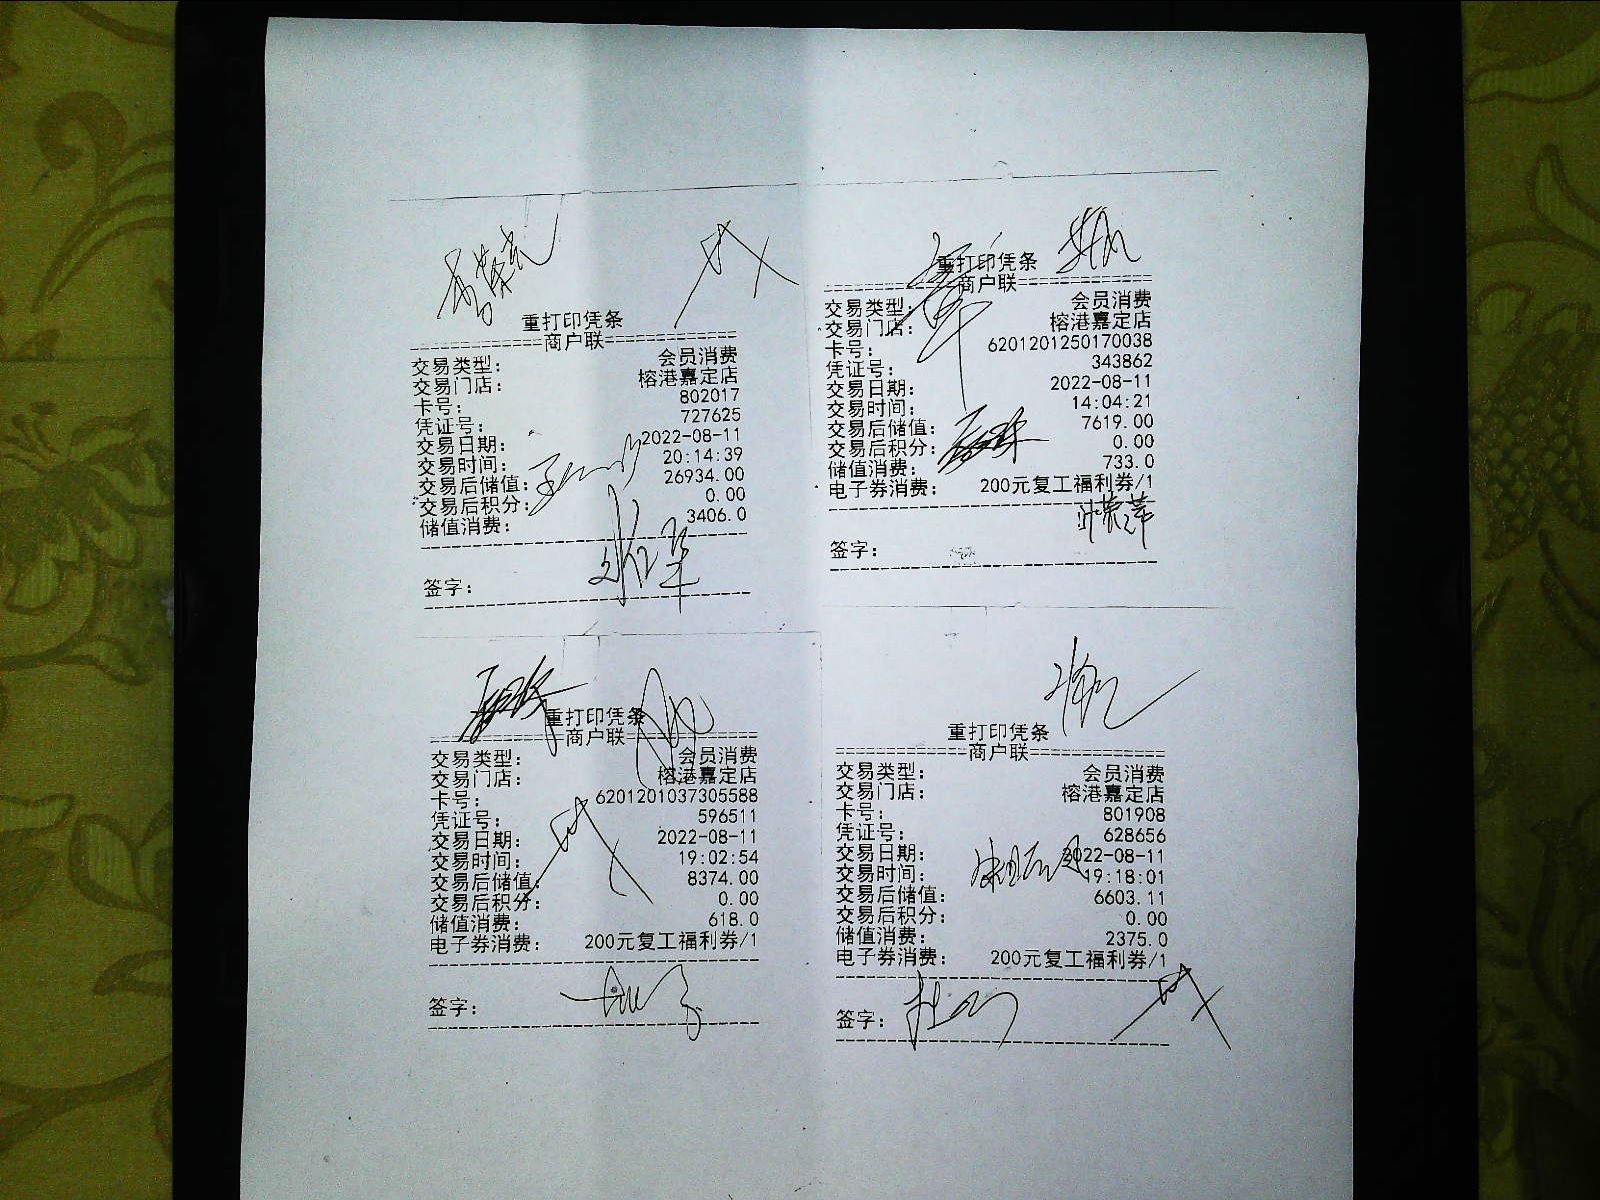 重打印凭条
==========商户联==========
交易类型： 会员消费
交易门店： 榕港嘉定店
卡号： 802017
凭证号： 727625
交易日期： 2022-08-11
交易时间： 20:14:39
交易后储值： 26934.00
交易后积分： 0.00
储值消费： 3406.0
签字：
重打印凭条
==========商户联==========
交易类型： 会员消费
交易门店： 榕港嘉定店
卡号： 6201201250170038
凭证号： 343862
交易日期： 2022-08-11
交易时间： 14:04:21
交易后储值： 7619.00
交易后积分： 0.00
储值消费： 733.0
电子券消费： 200元复工福利券/1
签字：
重打印凭条
==========商户联==========
交易类型： 会员消费
交易门店： 榕港嘉定店
卡号： 6201201037305588
凭证号： 596511
交易日期： 2022-08-11
交易时间： 19:02:54
交易后储值： 8374.00
交易后积分： 0.00
储值消费： 618.0
电子券消费： 200元复工福利券/1
签字：
重打印凭条
==========商户联==========
交易类型： 会员消费
交易门店： 榕港嘉定店
卡号： 801908
凭证号： 628656
交易日期： 2022-08-11
交易时间： 19:18:01
交易后储值： 6603.11
交易后积分： 0.00
储值消费： 2375.0
电子券消费： 200元复工福利券/1
签字：